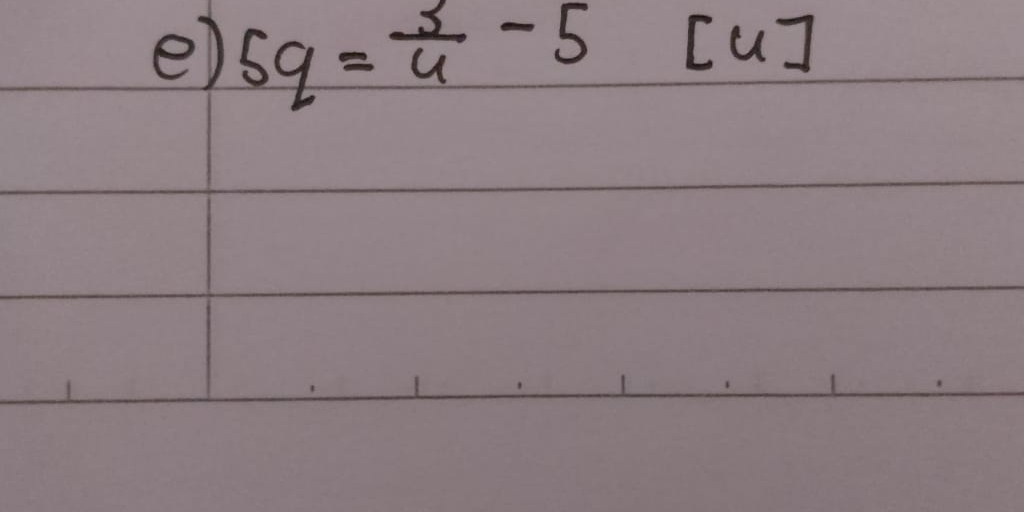 e) 5q = 3/u - 5 [u]